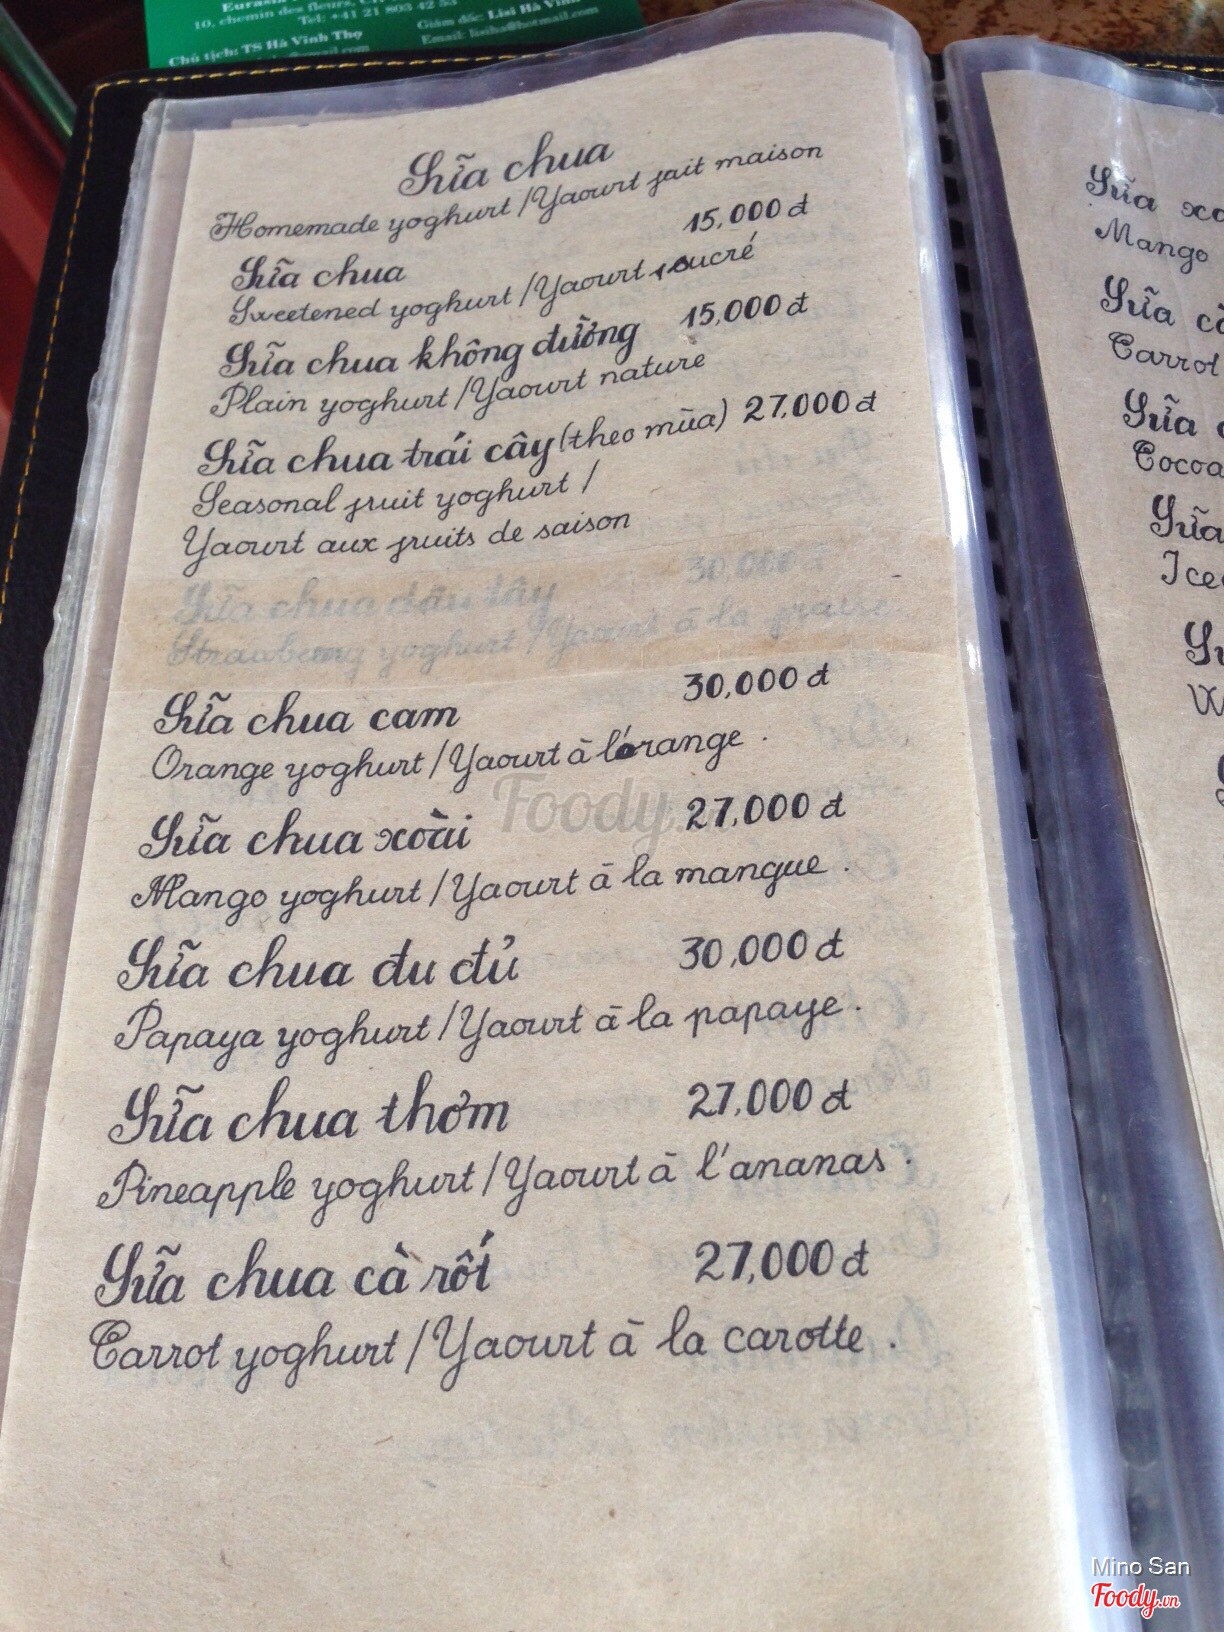 10, chemin des fleurs,
Tel: +41 21 803 42 53
Chủ tịch: TS Hà Vĩnh Thọ
Giám đốc: Lisi Hà Vinh
Email: lisiha@hotmail.com
Sữa chua
Homemade yoghurt/Yaourt fait maison
Sữa chua 15,000 đ
Sweetened yoghurt/Yaourt sucré
Sữa chua không đường 15,000 đ
Plain yoghurt/Yaourt nature
Sữa chua trái cây (theo mùa) 27,000 đ
Seasonal fruit yoghurt /
Yaourt aux fruits de saison
Sữa chua dâu tây 30,000 đ
Strawberry yoghurt/Yaourt à la fraise
Sữa chua cam 30,000 đ
Orange yoghurt/Yaourt à l'orange.
Sữa chua xoài 27,000 đ
Mango yoghurt/Yaourt à la mangue.
Sữa chua đu đủ 30,000 đ
Papaya yoghurt/Yaourt à la papaye.
Sữa chua thơm 27,000 đ
Pineapple yoghurt/Yaourt à l'ananas.
Sữa chua cà rốt 27,000 đ
Carrot yoghurt/Yaourt à la carotte.
Sữa
Mango
Sữa
Carrot
Sữa
Cocoa
Sữa
Foody
Mino San
Foody.vn